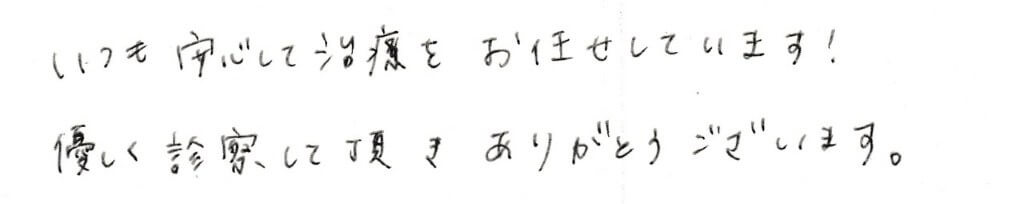 いつも安心して治療をお任せしています!
優しく診察して頂きありがとうございます。